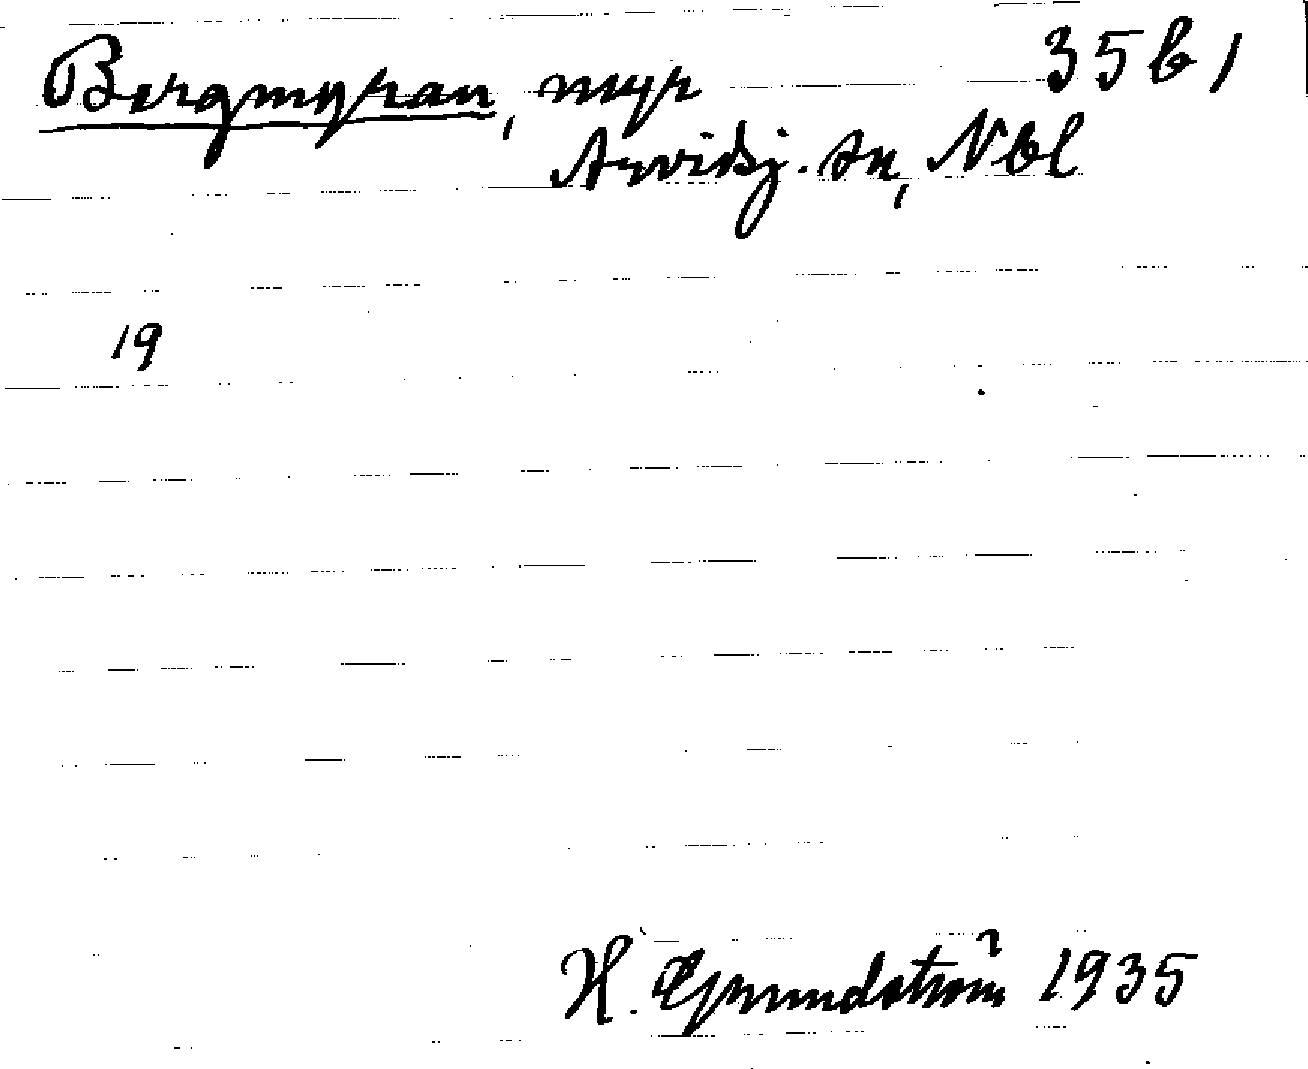 Bergmyran, myr 35 b 1
Arvidsj. sn, Nbl
19
H. Grundström 1935